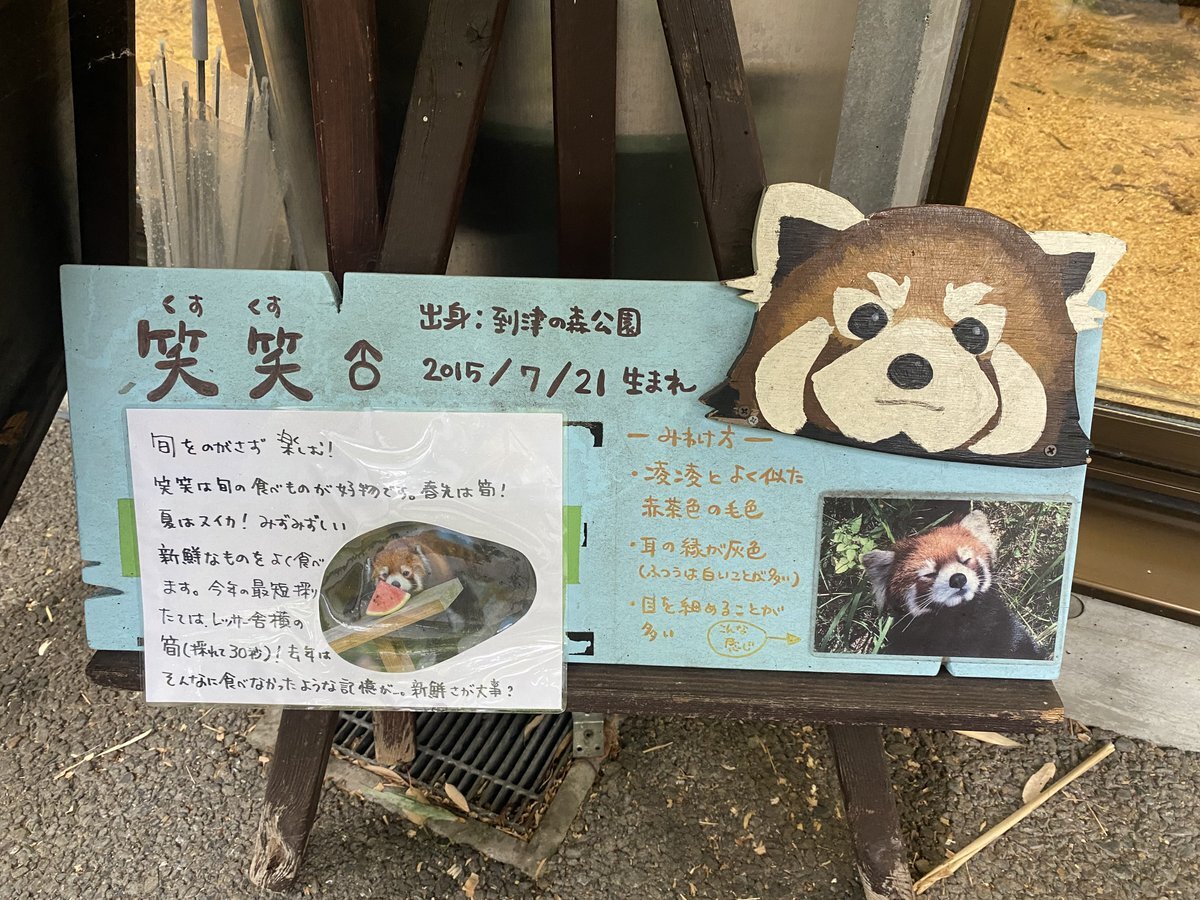 くす くす
笑笑 ♂
出身:到津の森公園
2015/7/21 生まれ
旬をのがさず 楽しむ!
笑笑は旬の食べものが好物です。春先は筍!
夏はスイカ!みずみずしい
新鮮なものをよく食べ
ます。今年の最短採り
たては、レッサー舎横の
筍(採れて30秒)!去年は
そんなに食べなかったような記憶が…。新鮮さが大事?
ーみわけ方ー
・凌凌とよく似た
赤茶色の毛色
・耳の縁が灰色
(ふつうは白いことが多い)
・目を細めることが
多い
こんな
感じ